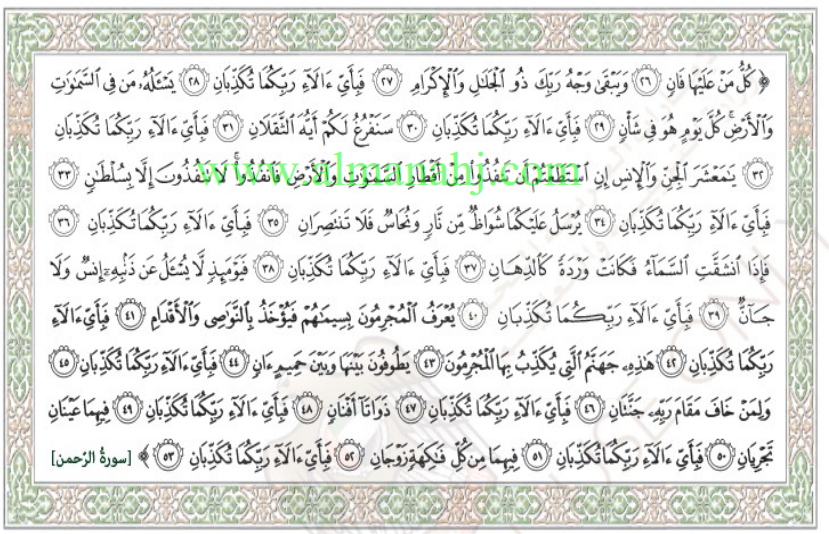 ﴿ كُلُّ مَنْ عَلَيْهَا فَانٍ ٢٦ وَيَبْقَىٰ وَجْهُ رَبِّكَ ذُو الْجَلَالِ وَالْإِكْرَامِ ٢٧ فَبِأَيِّ ءَالَآءِ رَبِّكُمَا تُكَذِّبَانِ ٢٨ يَسْـَٔلُهُۥ مَن فِي السَّمَٰوَٰتِ
وَالْأَرْضِ ۚ كُلَّ يَوْمٍ هُوَ فِي شَأْنٍ ٢٩ فَبِأَيِّ ءَالَآءِ رَبِّكُمَا تُكَذِّبَانِ ٣٠ سَنَفْرُغُ لَكُمْ أَيُّهَ الثَّقَلَانِ ٣١ فَبِأَيِّ ءَالَآءِ رَبِّكُمَا تُكَذِّبَانِ
٣٢ يَٰمَعْشَرَ الْجِنِّ وَالْإِنسِ إِنِ اسْتَطَعْتُمْ أَن تَنفُذُوا۟ مِنْ أَقْطَارِ السَّمَٰوَٰتِ وَالْأَرْضِ فَانفُذُوا۟ ۚ لَا تَنفُذُونَ إِلَّا بِسُلْطَٰنٍ ٣٣
www.almanahj.com
فَبِأَيِّ ءَالَآءِ رَبِّكُمَا تُكَذِّبَانِ ٣٤ يُرْسَلُ عَلَيْكُمَا شُوَاظٌ مِّن نَّارٍ وَنُحَاسٌ فَلَا تَنتَصِرَانِ ٣٥ فَبِأَيِّ ءَالَآءِ رَبِّكُمَا تُكَذِّبَانِ ٣٦
فَإِذَا انشَقَّتِ السَّمَآءُ فَكَانَتْ وَرْدَةً كَالدِّهَانِ ٣٧ فَبِأَيِّ ءَالَآءِ رَبِّكُمَا تُكَذِّبَانِ ٣٨ فَيَوْمَئِذٍ لَّا يُسْـَٔلُ عَن ذَنۢبِهِۦٓ إِنسٌ وَلَا
جَآنٌّ ٣٩ فَبِأَيِّ ءَالَآءِ رَبِّكُمَا تُكَذِّبَانِ ٤٠ يُعْرَفُ الْمُجْرِمُونَ بِسِيمَٰهُمْ فَيُؤْخَذُ بِالنَّوَٰصِي وَالْأَقْدَامِ ٤١ فَبِأَيِّ ءَالَآءِ
رَبِّكُمَا تُكَذِّبَانِ ٤٢ هَٰذِهِۦ جَهَنَّمُ الَّتِي يُكَذِّبُ بِهَا الْمُجْرِمُونَ ٤٣ يَطُوفُونَ بَيْنَهَا وَبَيْنَ حَمِيمٍ ءَانٍ ٤٤ فَبِأَيِّ ءَالَآءِ رَبِّكُمَا تُكَذِّبَانِ ٤٥
وَلِمَنْ خَافَ مَقَامَ رَبِّهِۦ جَنَّتَانِ ٤٦ فَبِأَيِّ ءَالَآءِ رَبِّكُمَا تُكَذِّبَانِ ٤٧ ذَوَاتَآ أَفْنَانٍ ٤٨ فَبِأَيِّ ءَالَآءِ رَبِّكُمَا تُكَذِّبَانِ ٤٩ فِيهِمَا عَيْنَانِ
تَجْرِيَانِ ٥٠ فَبِأَيِّ ءَالَآءِ رَبِّكُمَا تُكَذِّبَانِ ٥١ فِيهِمَا مِن كُلِّ فَٰكِهَةٍ زَوْجَانِ ٥٢ فَبِأَيِّ ءَالَآءِ رَبِّكُمَا تُكَذِّبَانِ ٥٣ ﴾ [سورة الرّحمن]